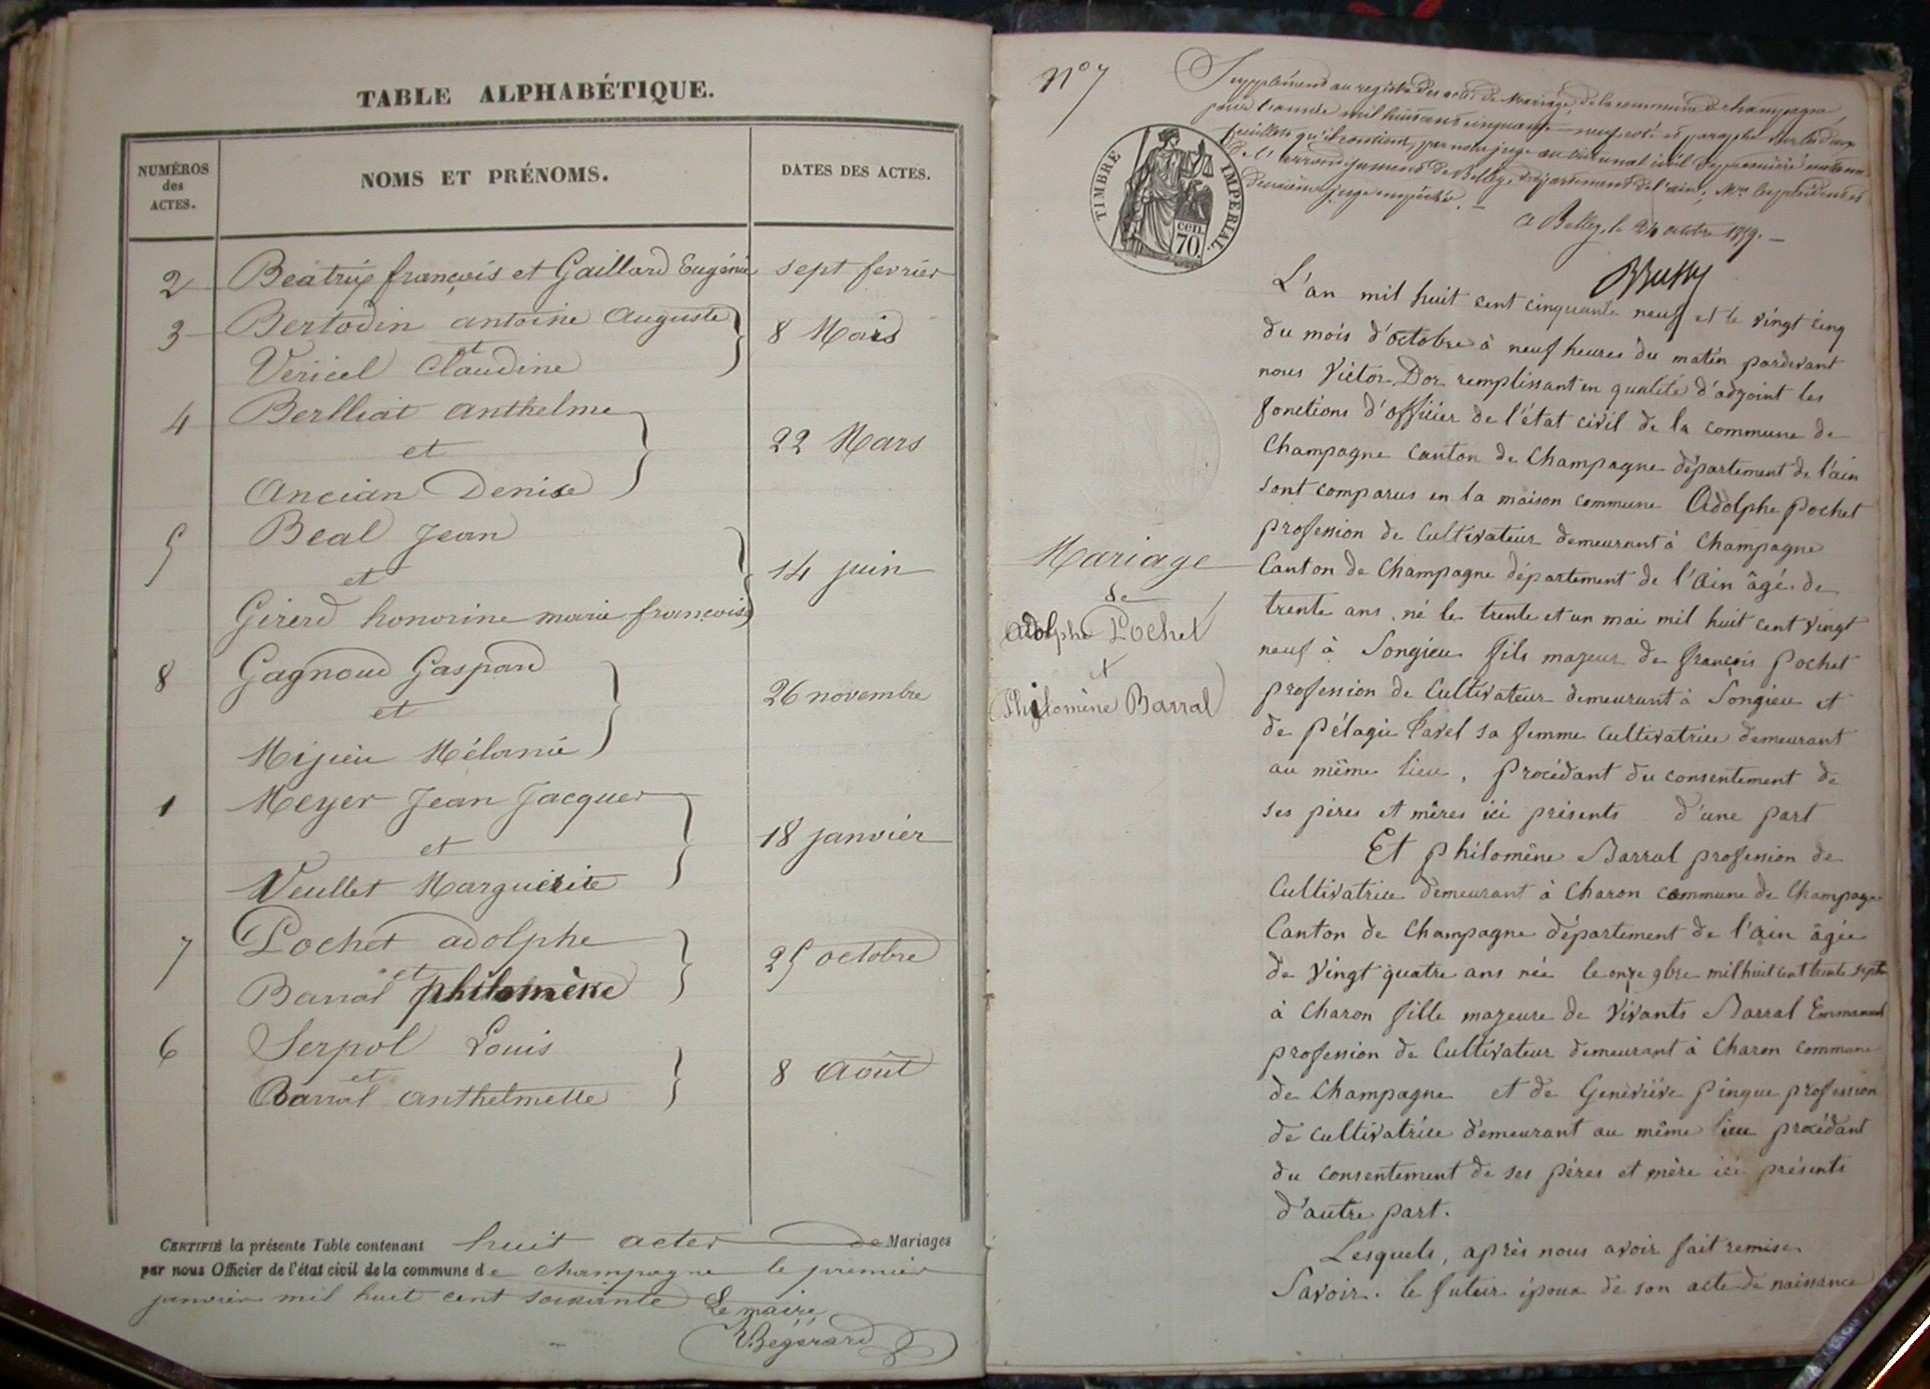 TABLE ALPHABÉTIQUE.
NUMÉROS des ACTES.
NOMS ET PRÉNOMS.
DATES DES ACTES.
2 Béatrix françois et Gaillard Eugénie sept fevrier
3 Bertodin antoine Auguste
et
Vericel Claudine
8 Mars
4 Berlliat anthelme
et
Ancian Denise
22 Mars
5 Béal Jean
et
Girerd honorine marie françoise
14 juin
8 Gagnoud Gaspard
et
Mijieu Mélanie
26 novembre
1 Meyer Jean Jacques
et
Veullet Marguerite
18 janvier
7 Pochet adolphe
et
Barral philomène
25 octobre
6 Serpol Louis
et
Barral anthelmette
8 Août
CERTIFIÉ la présente Table contenant huit actes de Mariages
par nous Officier de l'état civil de la commune de champagne le premier
janvier mil huit cent soixante Le maire
Bégérard
N° 7
Supplément au registre des actes de Mariage, de la commune de champagne,
pour l'année mil huit cent cinquante-neuf coté et paraphé sur les deux
feuillets qu'il contient, par nous juge au tribunal civil de première instance
de l'arrondissement de Belley, département de l'ain, Mr le président et
deuxième juge empêchés.
à Belley, le 24 octobre 1859.
TIMBRE IMPÉRIAL.
CEN.
70.
L'an mil huit cent cinquante neuf et le vingt cinq
du mois d'octobre à neuf heures du matin pardevant
nous Victor Dor remplissant en qualité d'adjoint les
fonctions d'officier de l'état civil de la commune de
Champagne Canton de Champagne département de l'ain
sont comparus en la maison commune Adolphe Pochet
profession de Cultivateur demeurant à Champagne
Canton de Champagne département de l'Ain âgé de
trente ans, né le trente et un mai mil huit cent vingt
neuf à Songieu fils majeur de françois Pochet
profession de Cultivateur demeurant à Songieu et
de Pélagie Favel sa femme Cultivatrice demeurant
au même lieu, Procédant du consentement de
ses pères et mères ici présents d'une part
Mariage
de
Adolphe Pochet
et
Philomène Barral
Et Philomène Barral profession de
Cultivatrice demeurant à Charon commune de Champagne
Canton de Champagne département de l'ain âgée
de Vingt quatre ans née le onze 9bre mil huit cent trente sept
à Charon fille majeure de Vivants Barral Emmanuel
profession de Cultivateur demeurant à Charon commune
de Champagne et de Geneviève Pingue profession
de cultivatrice demeurant au même lieu procédant
du consentement de ses pères et mère ici présents
d'autre part.
Lesquels, après nous avoir fait remise
Savoir. le futur époux de son acte de naissance